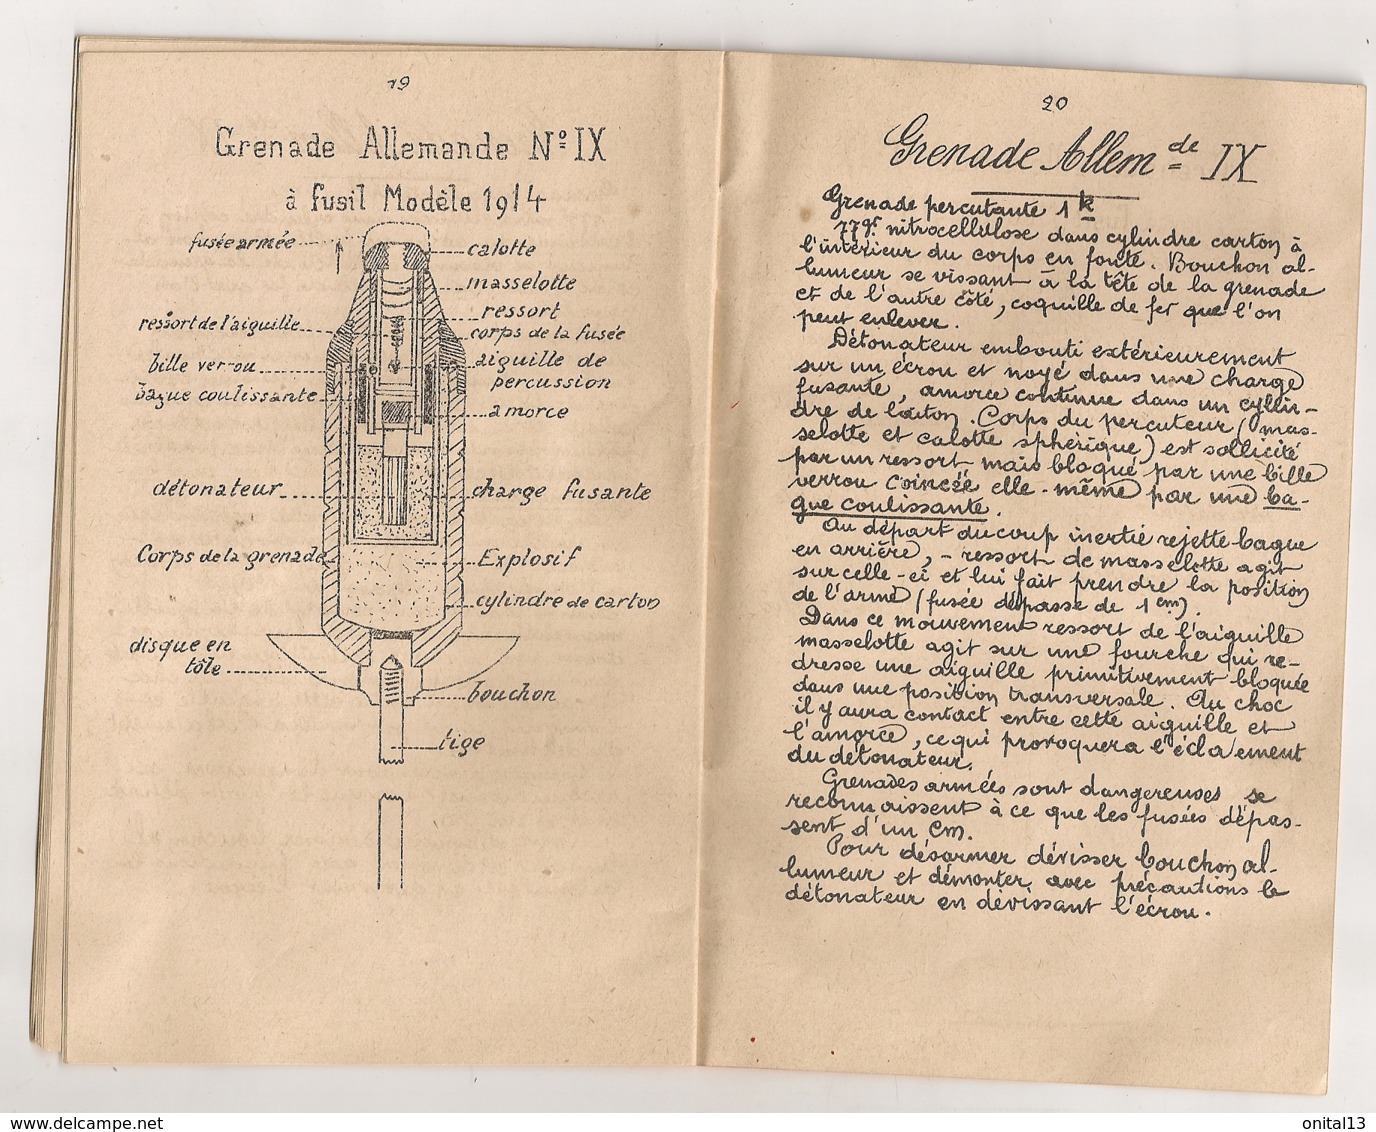 19
Grenade Allemande Nº IX
à fusil Modèle 1914
fusée armée
calotte
masselotte
ressort
ressort de l'aiguille
corps de la fusée
bille verrou
aiguille de
percussion
bague coulissante
amorce
détonateur
charge fusante
Corps de la grenade
Explosif
cylindre de carton
disque en
tôle
bouchon
tige
20
Grenade Allem de IX
Grenade percutante 1 k
77gr. nitrocellulose dans cylindre carton à
l'intérieur du corps en fonte. Bouchon al-
lumeur se vissant à la tête de la grenade
et de l'autre côté, coquille de fer que l'on
peut enlever.
Détonateur embouti extérieurement
sur un écrou et noyé dans une charge
fusante, amorce contenue dans un cylin-
dre de laiton. Corps du percuteur (mas-
selotte et calotte sphérique) est sollicité
par un ressort mais bloqué par une bille
verrou coincée elle-même par une ba-
gue coulissante.
Au départ du coup inertie rejette bague
en arrière, - ressort de masselotte agit
sur celle-ci et lui fait prendre la position
de l'armé (fusée dépasse de 1 cm).
Dans ce mouvement ressort de l'aiguille
masselotte agit sur une fourche qui re-
dresse une aiguille primitivement bloquée
dans une position transversale. Au choc
il y aura contact entre cette aiguille et
l'amorce, ce qui provoquera l'écla ement
du détonateur.
Grenades armées sont dangereuses se
reconnaissent à ce que les fusées dépas-
sent d'un cm.
Pour désarmer dévisser bouchon al-
lumeur et démonter avec précautions le
détonateur en dévissant l'écrou.
www.delcampe.net
onital13